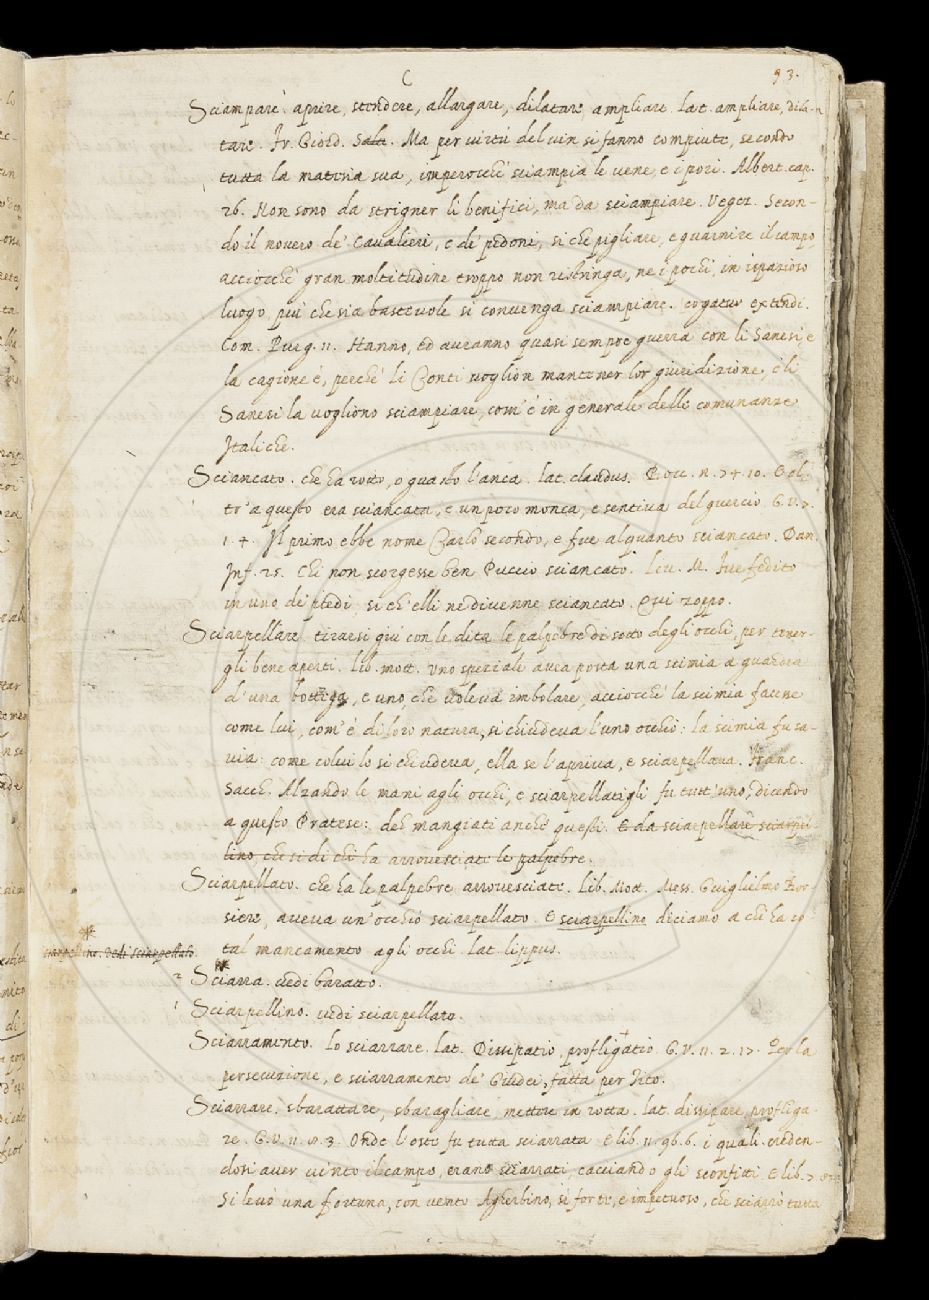 C
93.
Sciampare. aprire, stendere, allargare, dilatare, ampliare. lat. ampliare, dila-
tare. Fr. Giord. Salt. Ma per virtù del vin si fanno compiute, secondo
tutta la materia sua, imperocchè sciampia le vene, e i pori. Albert. cap.
26. Non sono da strigner li benifici, ma da sciampiare. Veget. Secon-
do il novero de' Cavalieri, e de' pedoni, si che pigliare, e guarnire il campo,
acciocchè gran moltitudine troppo non ristringa, ne i pochi in ispazioso
luogo, più che sia bastevole si convenga sciampiare. cogatur extendi.
Com. Purg. 11. Hanno, ed avranno quasi sempre guerra con li Sanesi, e
la cagione è, perchè li Conti voglion mantener lor giuridizione, e li
Sanesi la vogliono sciampiare, com' è in generale delle comunanze
Italiche.
Sciancato. che ha rotto, o guasto l'anca. lat. claudus. Bocc. n. 74. 10. E ol-
tr' a questo era sciancata, e un poco monca, e sentiva del guercio. G. V. 7.
1. 4. Il primo ebbe nome Carlo secondo, e fue alquanto sciancato. Dan.
Inf. 25. Chi non scorgesse ben Puccio sciancato. Liv. M. Fue fedito
in uno de' piedi, si ch' elli ne divenne sciancato. Qui zoppo.
Sciarpellare. tirarsi giù con le dita le palpebre di sotto degli occhi, per tener-
gli bene aperti. Lib. mott. Uno speziale avea posta una scimia a guardia
d' una bottega, e uno, che voleva imbolare, acciocchè la scimia facesse
come lui, com' è di loro natura, si chiudeva l'uno occhio: la scimia fu sa-
via: come colui lo si chiudeva, ella se l'apriva, e sciarpellava. Franc.
Sacch. Alzando le mani agli occhi, e sciarpellatigli fu tutt' uno, dicendo
a questo Pratese: deh mangiati anche questi. E da sciarpellare sciarpel-
lino, che si di chi ha arrovesciate le palpebre.
Sciarpellato. che ha le palpebre arrovesciate. Lib. Mott. Mess. Guiglielmo Bor-
siere, aveva un' occhio sciarpellato. E sciarpellino diciamo a chi ha co-
tal mancamento agli occhi. Lat. lippus.
sciarpellino. vedi sciarpellato.
2 Sciarra. vedi baratto.
1 Sciarpellino. vedi sciarpellato.
Sciarramento. lo sciarrare. Lat. Dissipatio, profligatio. G. V. 11. 2. 17. Per la
persecuzione, e sciarramento de' Giudei, fatta per Tito.
Sciarrare. sbarattare, sbaragliare, mettere in rotta. lat. dissipare, profliga-
re. G. V. 11. 8. 3. Onde l'oste fu tutta sciarrata. E lib. 11. 96. 6. i quali creden-
dosi aver vinto il campo, erano sciarrati, cacciando gli sconfitti. E lib. 7.
Si levò una fortuna, con vento Agherbino, sì forte, e impetuoso, che sciarrò tutta